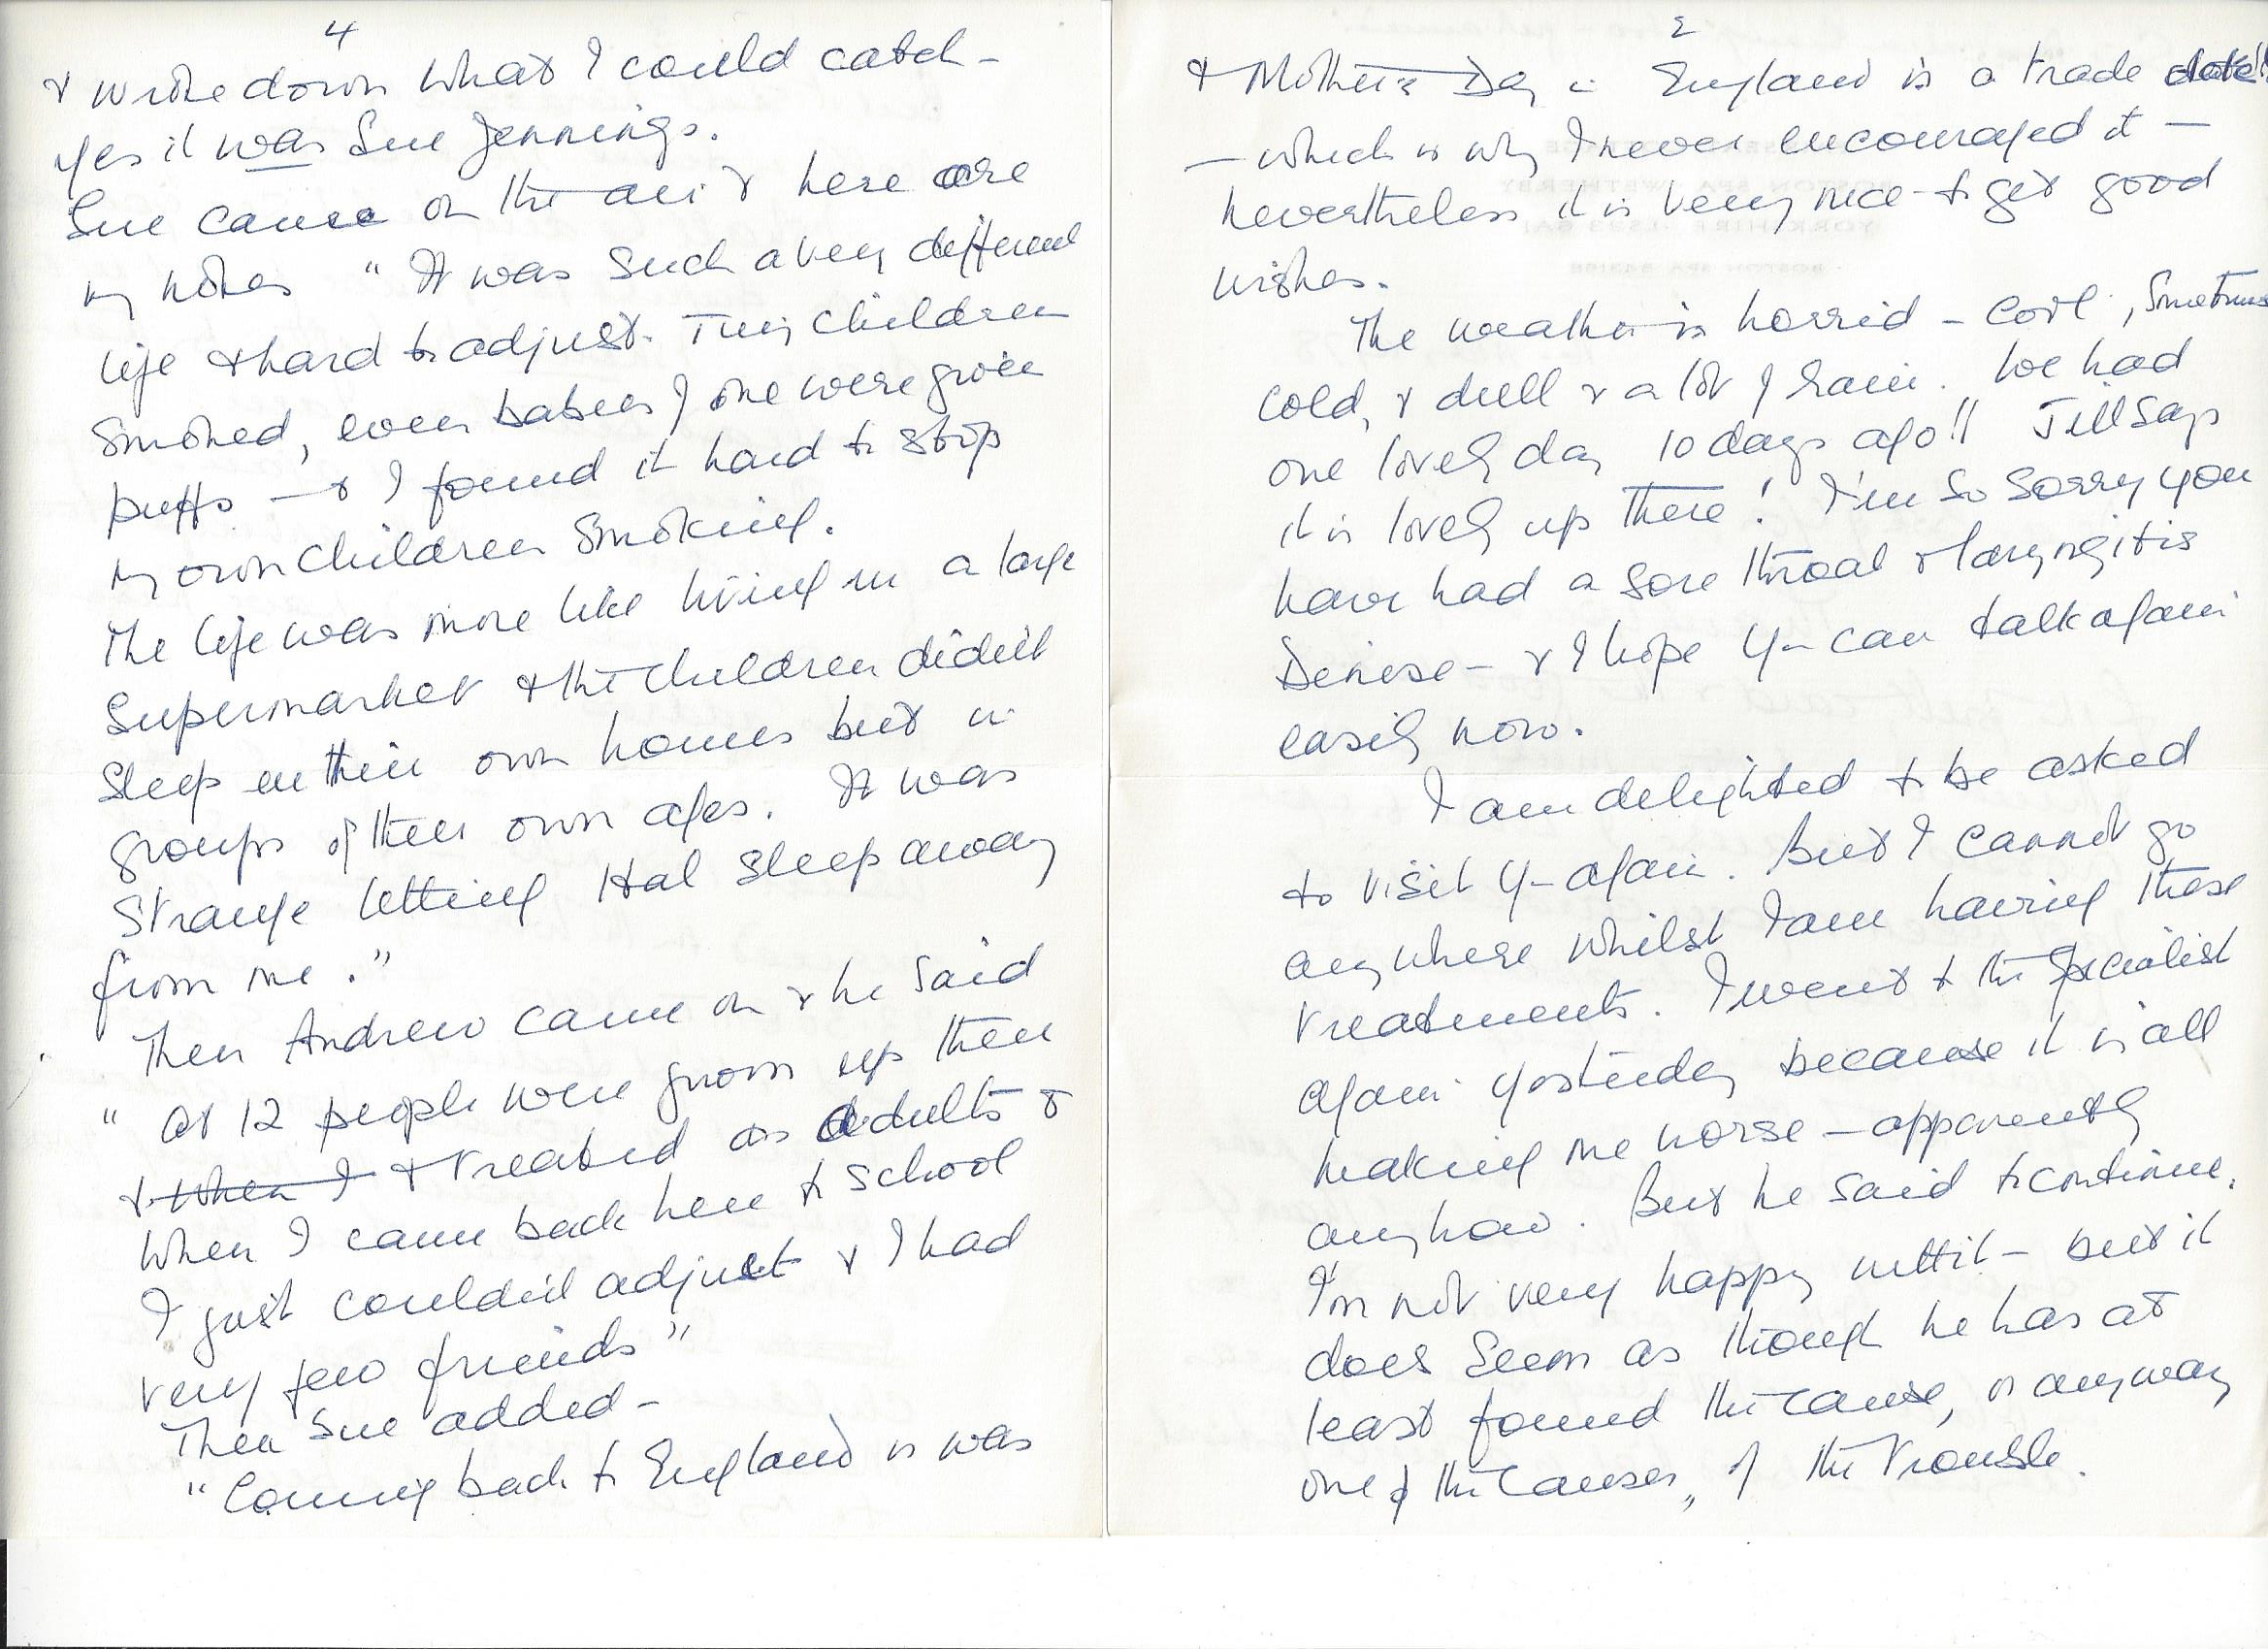 4
& wrote down what I could catch -
yes it was Sue Jennings.
Sue came on the air & here are
my notes "It was such a very different
life & hard to adjust. Tiny children
smoked, even babies of one were given
puffs — & I found it hard to stop
my own children smoking.
The life was more like living in a large
supermarket & the children didn't
sleep in their own homes but in
groups of their own ages. It was
strange letting Hal sleep away
from me."
Then Andrew came on & he said
"at 12 people were grown up then
& When I & treated as adults &
when I came back here to school
I just couldn't adjust & I had
very few friends"
Then Sue added -
"Coming back to England is was
2
& Mother's Day in England is a trade date!!
— which is why I never encouraged it —
nevertheless it is very nice to get good
wishes.
The weather is horrid - cool, sometimes
cold, & dull & a lot of rain. We had
one lovely day 10 days ago!! Jill says
it is lovely up there! I'm so sorry you
have had a sore throat & laryngitis
Denise - & I hope you can talk again
easily now.
I am delighted to be asked
to visit you again. But I cannot go
anywhere whilst I am having these
treatments. I went to the specialist
again yesterday because it is all
making me worse - apparently
anyhow. But he said to continue.
I'm not very happy with it - but it
does seem as though he has at
least found the cause, or anyway
one of the causes, of the trouble.